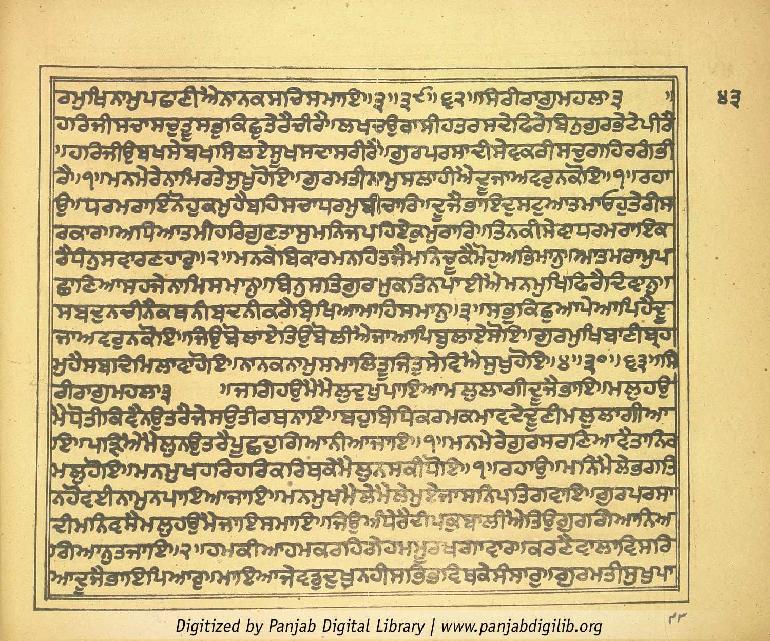 ਰਮੁਖਿਨਾਮੁਪਛਾਣੀਐਨਾਨਕਸਚਿਸਮਾਇ॥੩॥੩੯॥੬੨॥ਸਿਰੀਰਾਗੁਮਹਲਾ੩ ॥
੪੩
ਹਰਿਜੀਸਚਾਸਚੁਤੂਸਭੁਕਿਛੁਤੇਰੈਚੀਰੈ॥ਲਖਚਉਰਾਸੀਹਤਰਸਦੇਫਿਰੇਬਿਨੁਗੁਰਭੇਟੇਪੀਰੈ
॥ਹਰਿਜੀਉਬਖਸੇਬਖਸਿਲਏਸੂਖਸਦਾਸਰੀਰੈ॥ਗੁਰਪਰਸਾਦੀਸੇਵਕਰੀਸਚੁਗਹਿਰਗੰਭੀ
ਰੈ॥੧॥ਮਨਮੇਰੇਨਾਮਿਰਤੇਸੁਖੁਹੋਇ॥ਗੁਰਮਤੀਨਾਮੁਸਲਾਹੀਐਦੂਜਾਅਵਰੁਨਕੋਇ॥੧॥ਰਹਾ
ਉ॥ਧਰਮਰਾਇਨੋਹੁਕਮੁਹੈਬਹਿਸਚਾਧਰਮੁਬੀਚਾਰਿ॥ਦੂਜੈਭਾਇਦੁਸਟੁਆਤਮਾਓਹੁਤੇਰੀਸ
ਰਕਾਰ॥ਅਧਿਆਤਮੀਹਰਿਗੁਣਤਾਸੁਮਨਿਜਪਹਿਏਕੁਮੁਰਾਰਿ॥ਤਿਨਕੀਸੇਵਾਧਰਮਰਾਇਕ
ਰੈਧੰਨੁਸਵਾਰਣਹਾਰੁ॥੨॥ਮਨਕੇਬਿਕਾਰਮਨਹਿਤਜੈਮਨਿਚੂਕੈਮੋਹੁਅਭਿਮਾਨੁ॥ਆਤਮਰਾਮੁਪ
ਛਾਣਿਆਸਹਜੇਨਾਮਿਸਮਾਨੁ॥ਬਿਨੁਸਤਿਗੁਰਮੁਕਤਿਨਪਾਈਐਮਨਮੁਖਿਫਿਰੈਦਿਵਾਨੁ॥
ਸਬਦੁਨਚੀਨੈਕਥਨੀਬਦਨੀਕਰੇਬਿਖਿਆਮਾਹਿਸਮਾਨੁ॥੩॥ਸਭੁਕਿਛੁਆਪੇਆਪਿਹੈਦੂ
ਜਾਅਵਰੁਨਕੋਇ॥ਜਿਉਬੋਲਾਏਤਿਉਬੋਲੀਐਜਾਆਪਿਬੁਲਾਏਸੋਇ॥ਗੁਰਮੁਖਿਬਾਣੀਬ੍ਰਹ
ਮੁਹੈਸਬਦਿਮਿਲਾਵਾਹੋਇ॥ਨਾਨਕਨਾਮੁਸਮਾਲਿਤੂਜਿਤੁਸੇਵਿਐਸੁਖੁਹੋਇ॥੪॥੩੦॥੬੩॥ਸਿ
ਰੀਰਾਗੁਮਹਲਾ੩ ॥ਜਗਿਹਉਮੈਮੈਲੁਦੁਖੁਪਾਇਆਮਲੁਲਾਗੀਦੂਜੈਭਾਇ॥ਮਲੁਹਉ
ਮੈਧੋਤੀਕਿਵੈਨਉਤਰੈਜੇਸਉਤੀਰਥਨਾਇ॥ਬਹੁਬਿਧਿਕਰਮਕਮਾਵਦੇਦੂਣੀਮਲੁਲਾਗੀਆ
ਇ॥ਪੜਿਐਮੈਲੁਨਉਤਰੈਪੂਛਹੁਗਿਆਨੀਆਜਾਇ॥੧॥ਮਨਮੇਰੇਗੁਰਸਰਣਿਆਵੈਤਾਨਿਰ
ਮਲੁਹੋਇ॥ਮਨਮੁਖਹਰਿਹਰਿਕਰਿਥਕੇਮੈਲੁਨਸਕੀਧੋਇ॥੧॥ਰਹਾਉ॥ਮਨਿਮੈਲੈਭਗਤਿ
ਨਹੋਵਈਨਾਮੁਨਪਾਇਆਜਾਇ॥ਮਨਮੁਖਮੈਲੇਮੈਲੇਮੁਏਜਾਸਨਿਪਤਿਗਵਾਇ॥ਗੁਰਪਰਸਾ
ਦੀਮਨਿਵਸੈਮਲੁਹਉਮੈਜਾਇਸਮਾਇ॥ਜਿਉਅੰਧੇਰੈਦੀਪਕੁਬਾਲੀਐਤਿਉਗੁਰਗਿਆਨਿਅ
ਗਿਆਨੁਤਜਾਇ॥੨॥ਹਮਕੀਆਹਮਕਰਹਗੇਹਮਮੂਰਖਗਾਵਾਰ॥ਕਰਣੈਵਾਲਾਵਿਸਰਿ
ਆਦੂਜੈਭਾਇਪਿਆਰੁ॥ਮਾਇਆਜੇਵਡੁਦੁਖੁਨਹੀਸਭਿਭਵਿਥਕੇਸੰਸਾਰੁ॥ਗੁਰਮਤੀਸੁਖੁਪਾ
Digitized by Panjab Digital Library | www.panjabdigilib.org